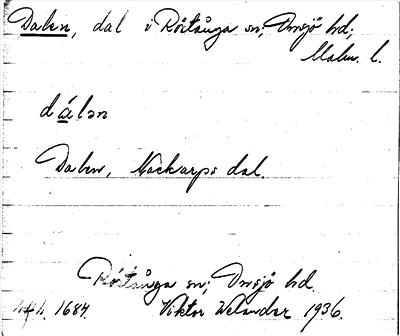 Dalen, dal i Röstånga sn; Onsjö hd;
Malm. l.
dálən
Dalen, Nackarps dal.
Röstånga sn; Onsjö hd.
1684. Viktor Welander 1936.